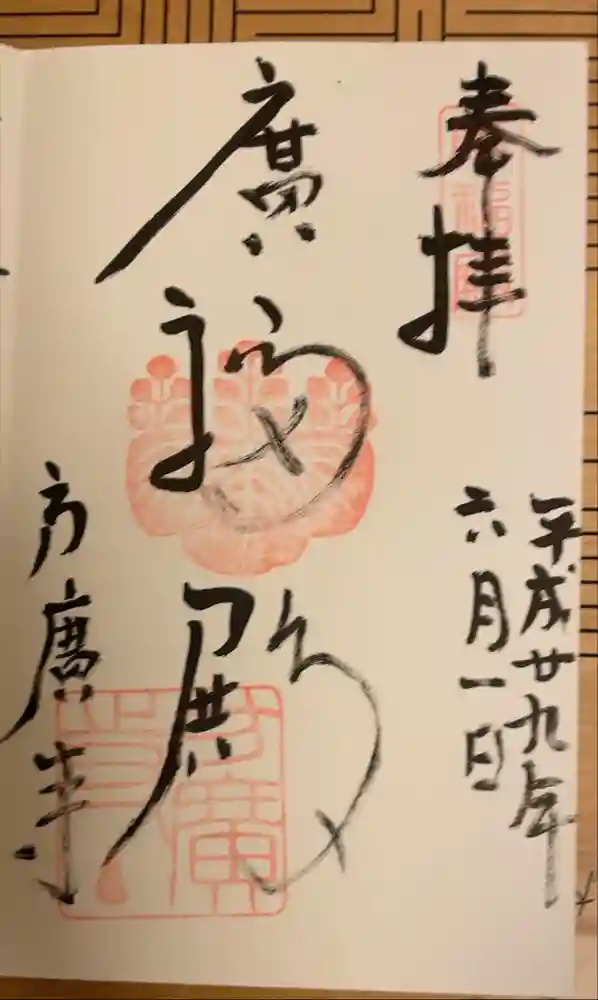 奉拝
平成廿九年
六月一日
廣福殿
方廣寺